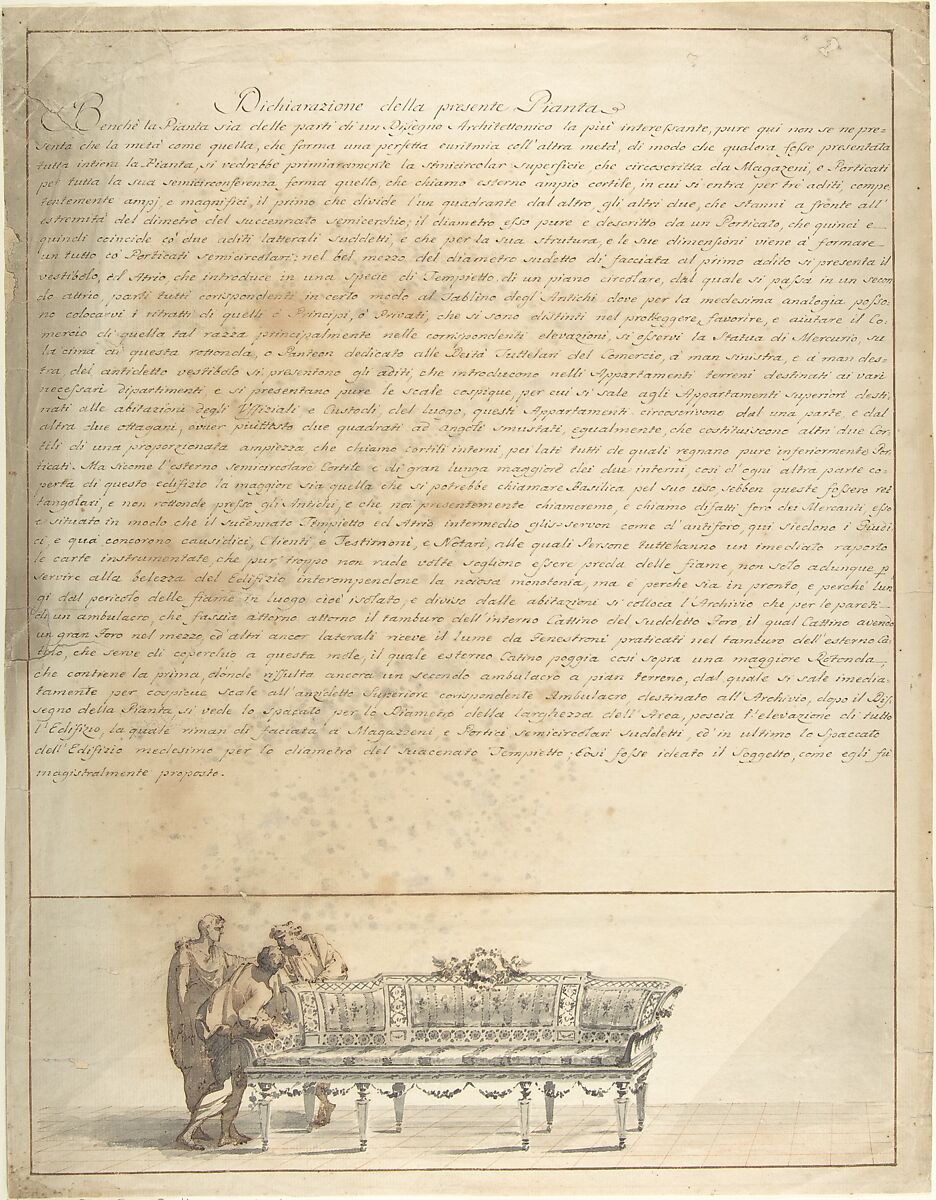 Dichiarazione della presente Pianta
Benchè la Pianta sia delle parti di un Disegno Architettonico la più interessante, pure qui non se ne pre=
senta che la metà come quella, che forma una perfetta euritmia coll'altra metà, di modo che qualora fosse presentata
tutta intiera la Pianta, si vedrebbe primieramente la semicircolar superficie che circoscritta da Magazeni, e Porticati
per tutta la sua semicirconferenza forma quello, che chiamo esterno ampio cortile, in cui si entra per trè aditi, compe
tentemente ampj, e magnifici, il primo che divide l'un quadrante dal altro, gli altri due, che stanni a fronte all'
estremità del dimetro del succennato semicerchio; il diametro esso pure e descritto da un Porticato, che quinci e
quindi coincide có due aditi latterali suddetti, e che per la sua strutura, e le sue dimensioni viene á formare
un tutto có Porticati semicircolari; nel bel mezzo del diametro sudetto di facciata al primo adito si presenta il
vestibolo, ed Atrio, che introduce in una specie di Tempietto di un piano circolare, dal quale si passa in un secon
do attrio, parti tutti corispondenti in certo modo al Tablino degl'Antichi dove per la medesima analogia posso=
no colocarvi i ritratti di quelli ó Principi, ó Privati, che si sono distinti nel proteggere, favorire, e aiutare il Co=
mercio di quella tal razza principalmente nelle corrispondenti elevazioni, si ofservi la Statua di Mercurio, su
la cima di questa rottonda, o Panteon dedicato alle Deità Tuttelari del Comercio, á man sinistra, e á man des=
tra, del antidetto vestibolo si presentono gli aditi, che introducono nelli Appartamenti terreni destinati ai vari
necessari dipartimenti, e si presentano pure le scale cospique, per cui si sale agli Appartamenti Superiori desti
nati alle abitazione degli Uffiziali e Custodi, del luogo, questi Appartamenti circoscrivono dal una parte, e dal
altra due ottagani, ovver piuttosto due quadrati ad angoli smustati, egualmente, che costituiscono altri due Cor
tili di una proporzionata ampiezza che chiamo cortili interni, pei lati tutti de quali regnano pure inferiormente Por
ticati. Ma sicome l'esterno semicircolare Cortile e di gran lunga maggiore dei due interni, così d'ogni altra parte co=
perta di questo edifizio la maggiore sia quella che si potrebbe chiamare Basilica, pel suo uso, sebben queste fossero ret
tangolari, e non rottonde presso gli Antichi, e che noi presentemente chiameremo, e chiamo difatti foro dei Mercanti, esso
e situato in modo che il sucennato Tempietto ed Atrio intermedio gli servon come d'antiforo, qui siedono i Giudi
ci, e quà concorono causidici, Clienti e Testimoni, e Notari, alle quali Persone tuttehanno un imediato raporto
le carte instrumentate, che pur troppo non rade volte sogliono essere preda delle fiame, non solo adunque p
servire alla belezza del Edifizio interompendone la noiosa monotonia, ma e perche sia in pronto, e perchè lun
gi dal pericolo delle fiame in luogo cioè isolato, e diviso dalle abitazioni si colloca l'Archivio che per le pareti
di un ambulacro, che fassia attorno attorno il tamburo dell'interno Cattino del suddetto Foro, il qual Cattino avendo
un gran Foro nel mezzo, ed altri ancor laterali riceve il lume da Fenestroni praticati nel tamburo dell'esterno Ca
tino, che serve di coperchio a questa mole, il quale esterno Catino poggia così sopra una maggiore Rotonda,
che contiene la prima, d'onde rissulta ancora un secondo ambulacro a pian terreno, dal quale si sale imedia=
tamente per cospicue scale all'anzidetto Superiore corispondente Ambulacro destinato all'Archivio, dopo il Dis=
segno della Pianta si vede lo Spacato per lo Diametro della larghezza dell'Area, poscia l'elevazione di tutto
l'Edifizio, la quale riman di facciata a Magazzeni, e Portici Semicircolari suddetti, ed in ultimo lo Spaccato
dell'Edifizio medesimo per lo diametro del suaccenato Tempietto; Così fosse ideato il Soggetto, come egli fú
magistralmente proposto.